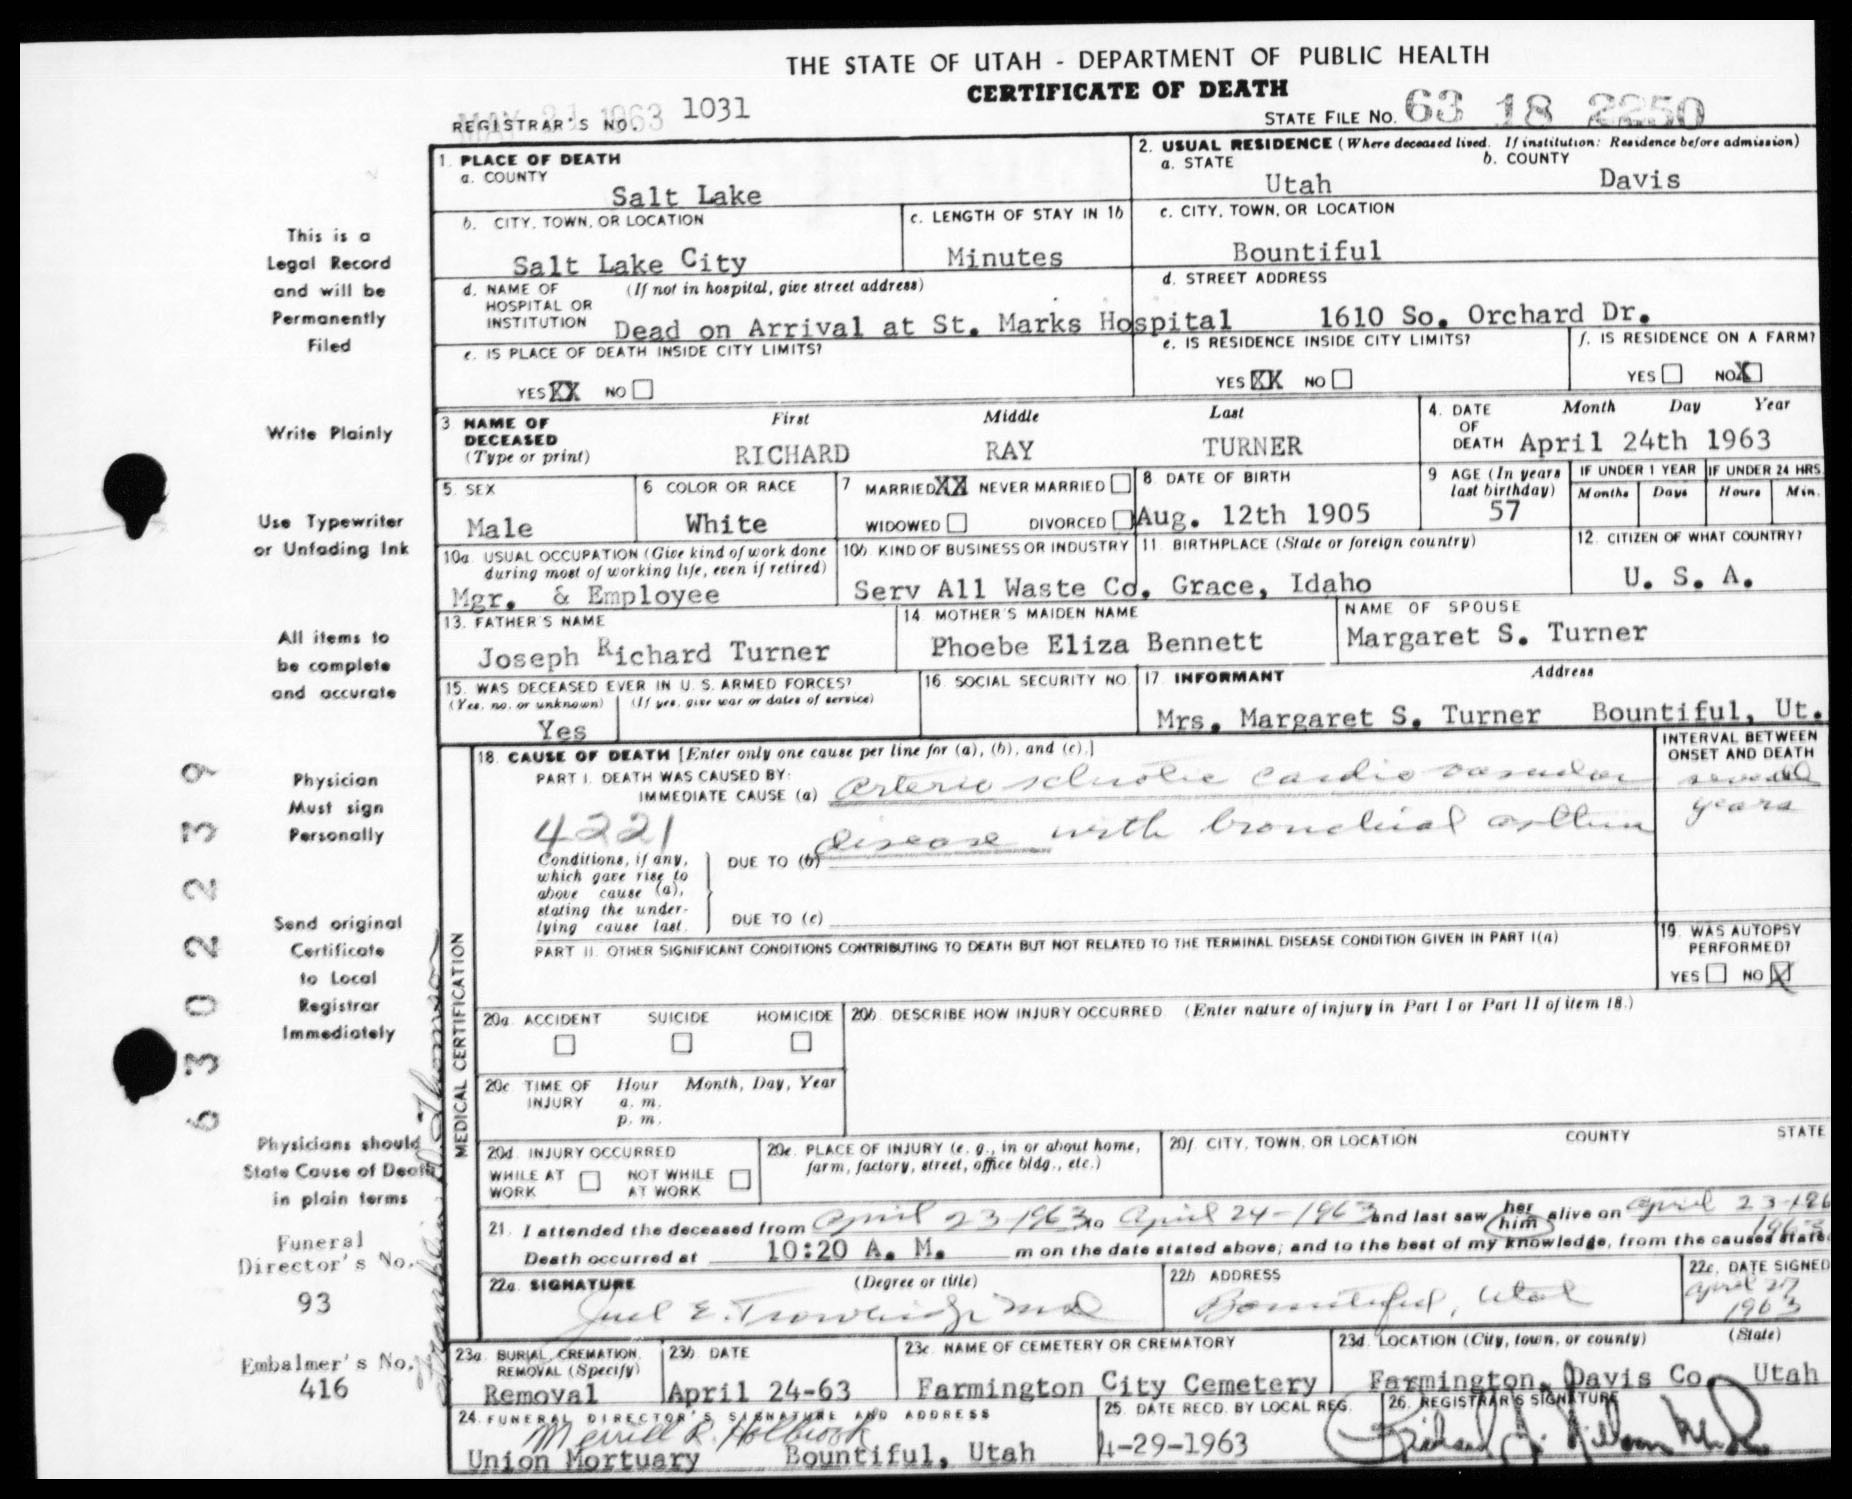 THE STATE OF UTAH - DEPARTMENT OF PUBLIC HEALTH
CERTIFICATE OF DEATH
REGISTRAR'S NO. 1031
STATE FILE NO. 63 18 2250
1. PLACE OF DEATH
a. COUNTY
Salt Lake
2. USUAL RESIDENCE (Where deceased lived. If institution: Residence before admission)
a. STATE
Utah
b. COUNTY
Davis
b. CITY, TOWN, OR LOCATION
Salt Lake City
c. LENGTH OF STAY IN 1b
Minutes
c. CITY, TOWN, OR LOCATION
Bountiful
d. NAME OF HOSPITAL OR INSTITUTION
(If not in hospital, give street address)
Dead on Arrival at St. Marks Hospital
d. STREET ADDRESS
1610 So. Orchard Dr.
e. IS PLACE OF DEATH INSIDE CITY LIMITS?
YES XX NO
e. IS RESIDENCE INSIDE CITY LIMITS?
YES XX NO
f. IS RESIDENCE ON A FARM?
YES NO X
3 NAME OF DECEASED
(Type or print)
First Middle Last
RICHARD RAY TURNER
4. DATE OF DEATH
Month Day Year
April 24th 1963
5. SEX
Male
6 COLOR OR RACE
White
7 MARRIED XX NEVER MARRIED
WIDOWED DIVORCED
8 DATE OF BIRTH
Aug. 12th 1905
9 AGE (In years last birthday)
57
IF UNDER 1 YEAR
Months Days
IF UNDER 24 HRS.
Hours Min.
10a. USUAL OCCUPATION (Give kind of work done during most of working life, even if retired)
Mgr. & Employee
10b. KIND OF BUSINESS OR INDUSTRY
Serv All Waste Co.
11. BIRTHPLACE (State or foreign country)
Grace, Idaho
12. CITIZEN OF WHAT COUNTRY?
U. S. A.
13. FATHER'S NAME
Joseph Richard Turner
14 MOTHER'S MAIDEN NAME
Phoebe Eliza Bennett
NAME OF SPOUSE
Margaret S. Turner
15. WAS DECEASED EVER IN U. S. ARMED FORCES?
(Yes, no, or unknown) (If yes, give war or dates of service)
Yes
16. SOCIAL SECURITY NO.
17. INFORMANT Address
Mrs. Margaret S. Turner Bountiful, Ut.
18. CAUSE OF DEATH [Enter only one cause per line for (a), (b), and (c).]
INTERVAL BETWEEN ONSET AND DEATH
PART I. DEATH WAS CAUSED BY:
IMMEDIATE CAUSE (a) arterio sclerotic cardio vascular
several years
4221
disease with bronchial asthma
Conditions, if any, which gave rise to above cause (a), stating the underlying cause last.
DUE TO (b)
DUE TO (c)
PART II. OTHER SIGNIFICANT CONDITIONS CONTRIBUTING TO DEATH BUT NOT RELATED TO THE TERMINAL DISEASE CONDITION GIVEN IN PART I(a)
19. WAS AUTOPSY PERFORMED?
YES NO X
MEDICAL CERTIFICATION
20a. ACCIDENT SUICIDE HOMICIDE
20b. DESCRIBE HOW INJURY OCCURRED (Enter nature of injury in Part I or Part II of item 18.)
20c. TIME OF INJURY
Hour Month, Day, Year
a. m.
p. m.
20d. INJURY OCCURRED
WHILE AT WORK NOT WHILE AT WORK
20e. PLACE OF INJURY (e. g., in or about home, farm, factory, street, office bldg., etc.)
20f. CITY, TOWN, OR LOCATION COUNTY STATE
21. I attended the deceased from April 23 1963 to April 24-1963 and last saw her him alive on April 23-196
1963
Death occurred at 10:20 A. M. m on the date stated above; and to the best of my knowledge, from the causes state
22a. SIGNATURE (Degree or title)
22b ADDRESS
Bountiful, Utah
22c. DATE SIGNED
April 27 1963
23a. BURIAL, CREMATION, REMOVAL (Specify)
Removal
23b DATE
April 24-63
23c. NAME OF CEMETERY OR CREMATORY
Farmington City Cemetery
23d. LOCATION (City, town, or county) (State)
Farmington, Davis Co. Utah
24. FUNERAL DIRECTOR'S SIGNATURE AND ADDRESS
Merrill R. Holbrook
Union Mortuary Bountiful, Utah
25. DATE RECD. BY LOCAL REG.
4-29-1963
26. REGISTRAR'S SIGNATURE
This is a
Legal Record
and will be
Permanently
Filed
Write Plainly
Use Typewriter
or Unfading Ink
All items to
be complete
and accurate
Physician
Must sign
Personally
Send original
Certificate
to Local
Registrar
Immediately
Physicians should
State Cause of Death
in plain terms
Funeral
Director's No.
93
Embalmer's No.
416
6302239